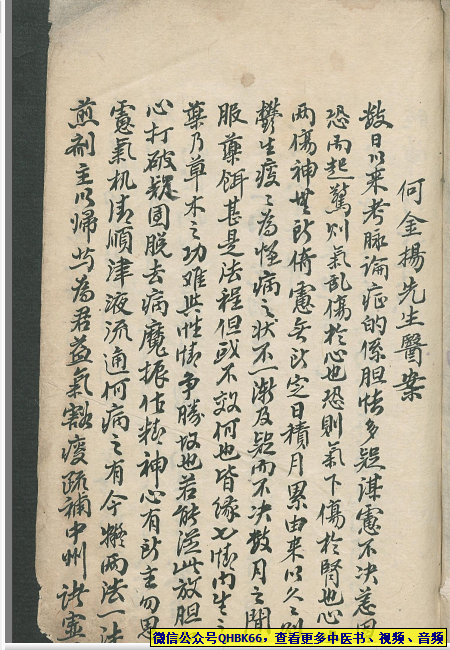 何金揚先生醫案
數日以來考脉論症的係胆怯多疑謀慮不决恙因
恐而起驚則氣乱傷於心也恐則氣下傷於腎也心
两傷神無所倚慮無所定日積月累由来以久之則
鬱生痰之為怪病之状不一漸及疑而不决数月之間
服藥餌甚是法程但或不效何也皆緣七情内生之
藥乃草木之功难與性情争勝故也若能從此放胆
心打破疑團脱去病魔振作精神心有所主勿思
慮氣机清順津液流通何病之有今擬两法一法
煎剂主以歸芍為君益氣豁痰疏補中州
微信公众号QHBK66，查看更多中医书、视频、音频